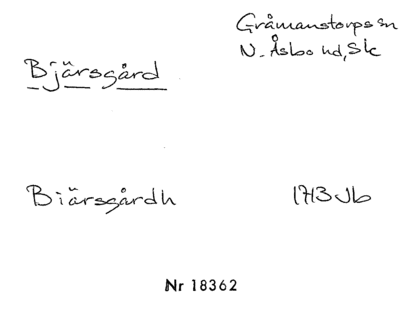 Gråmanstorps sn
N. Åsbo hd, Sk
Bjärsgård
Biärsgårdh 1713 Jb
Nr 18362